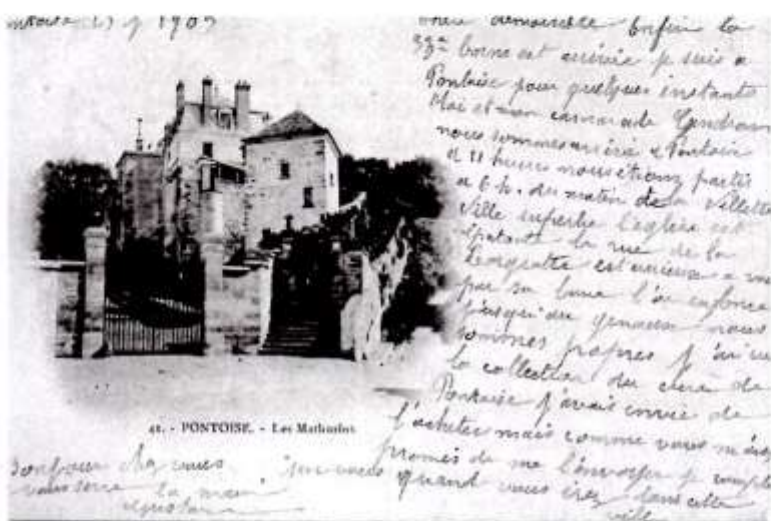 1903
demoiselle Enfin la
borne est arrivée je suis a
Pontoise pour quelques instants
Moi et mon camarade Gendron
nous sommes arrivé a Pontoise
a 11 heures nous étions partis
a 6 h. du matin de la Villette
Ville superbe l'église est
épatante la rue de la
est curieuse a
par sa l'on enfonce
jusqu'au genoux nous
sommes propres j'ai vu
la collection du curé de
Pontoise j'avais envie de
l'acheter mais comme vous
promis de me l'envoyer je compte
quand vous irez dans cette
ville
41. - PONTOISE. - Les Mathurins
Bonjour chez vous
vous serre la main